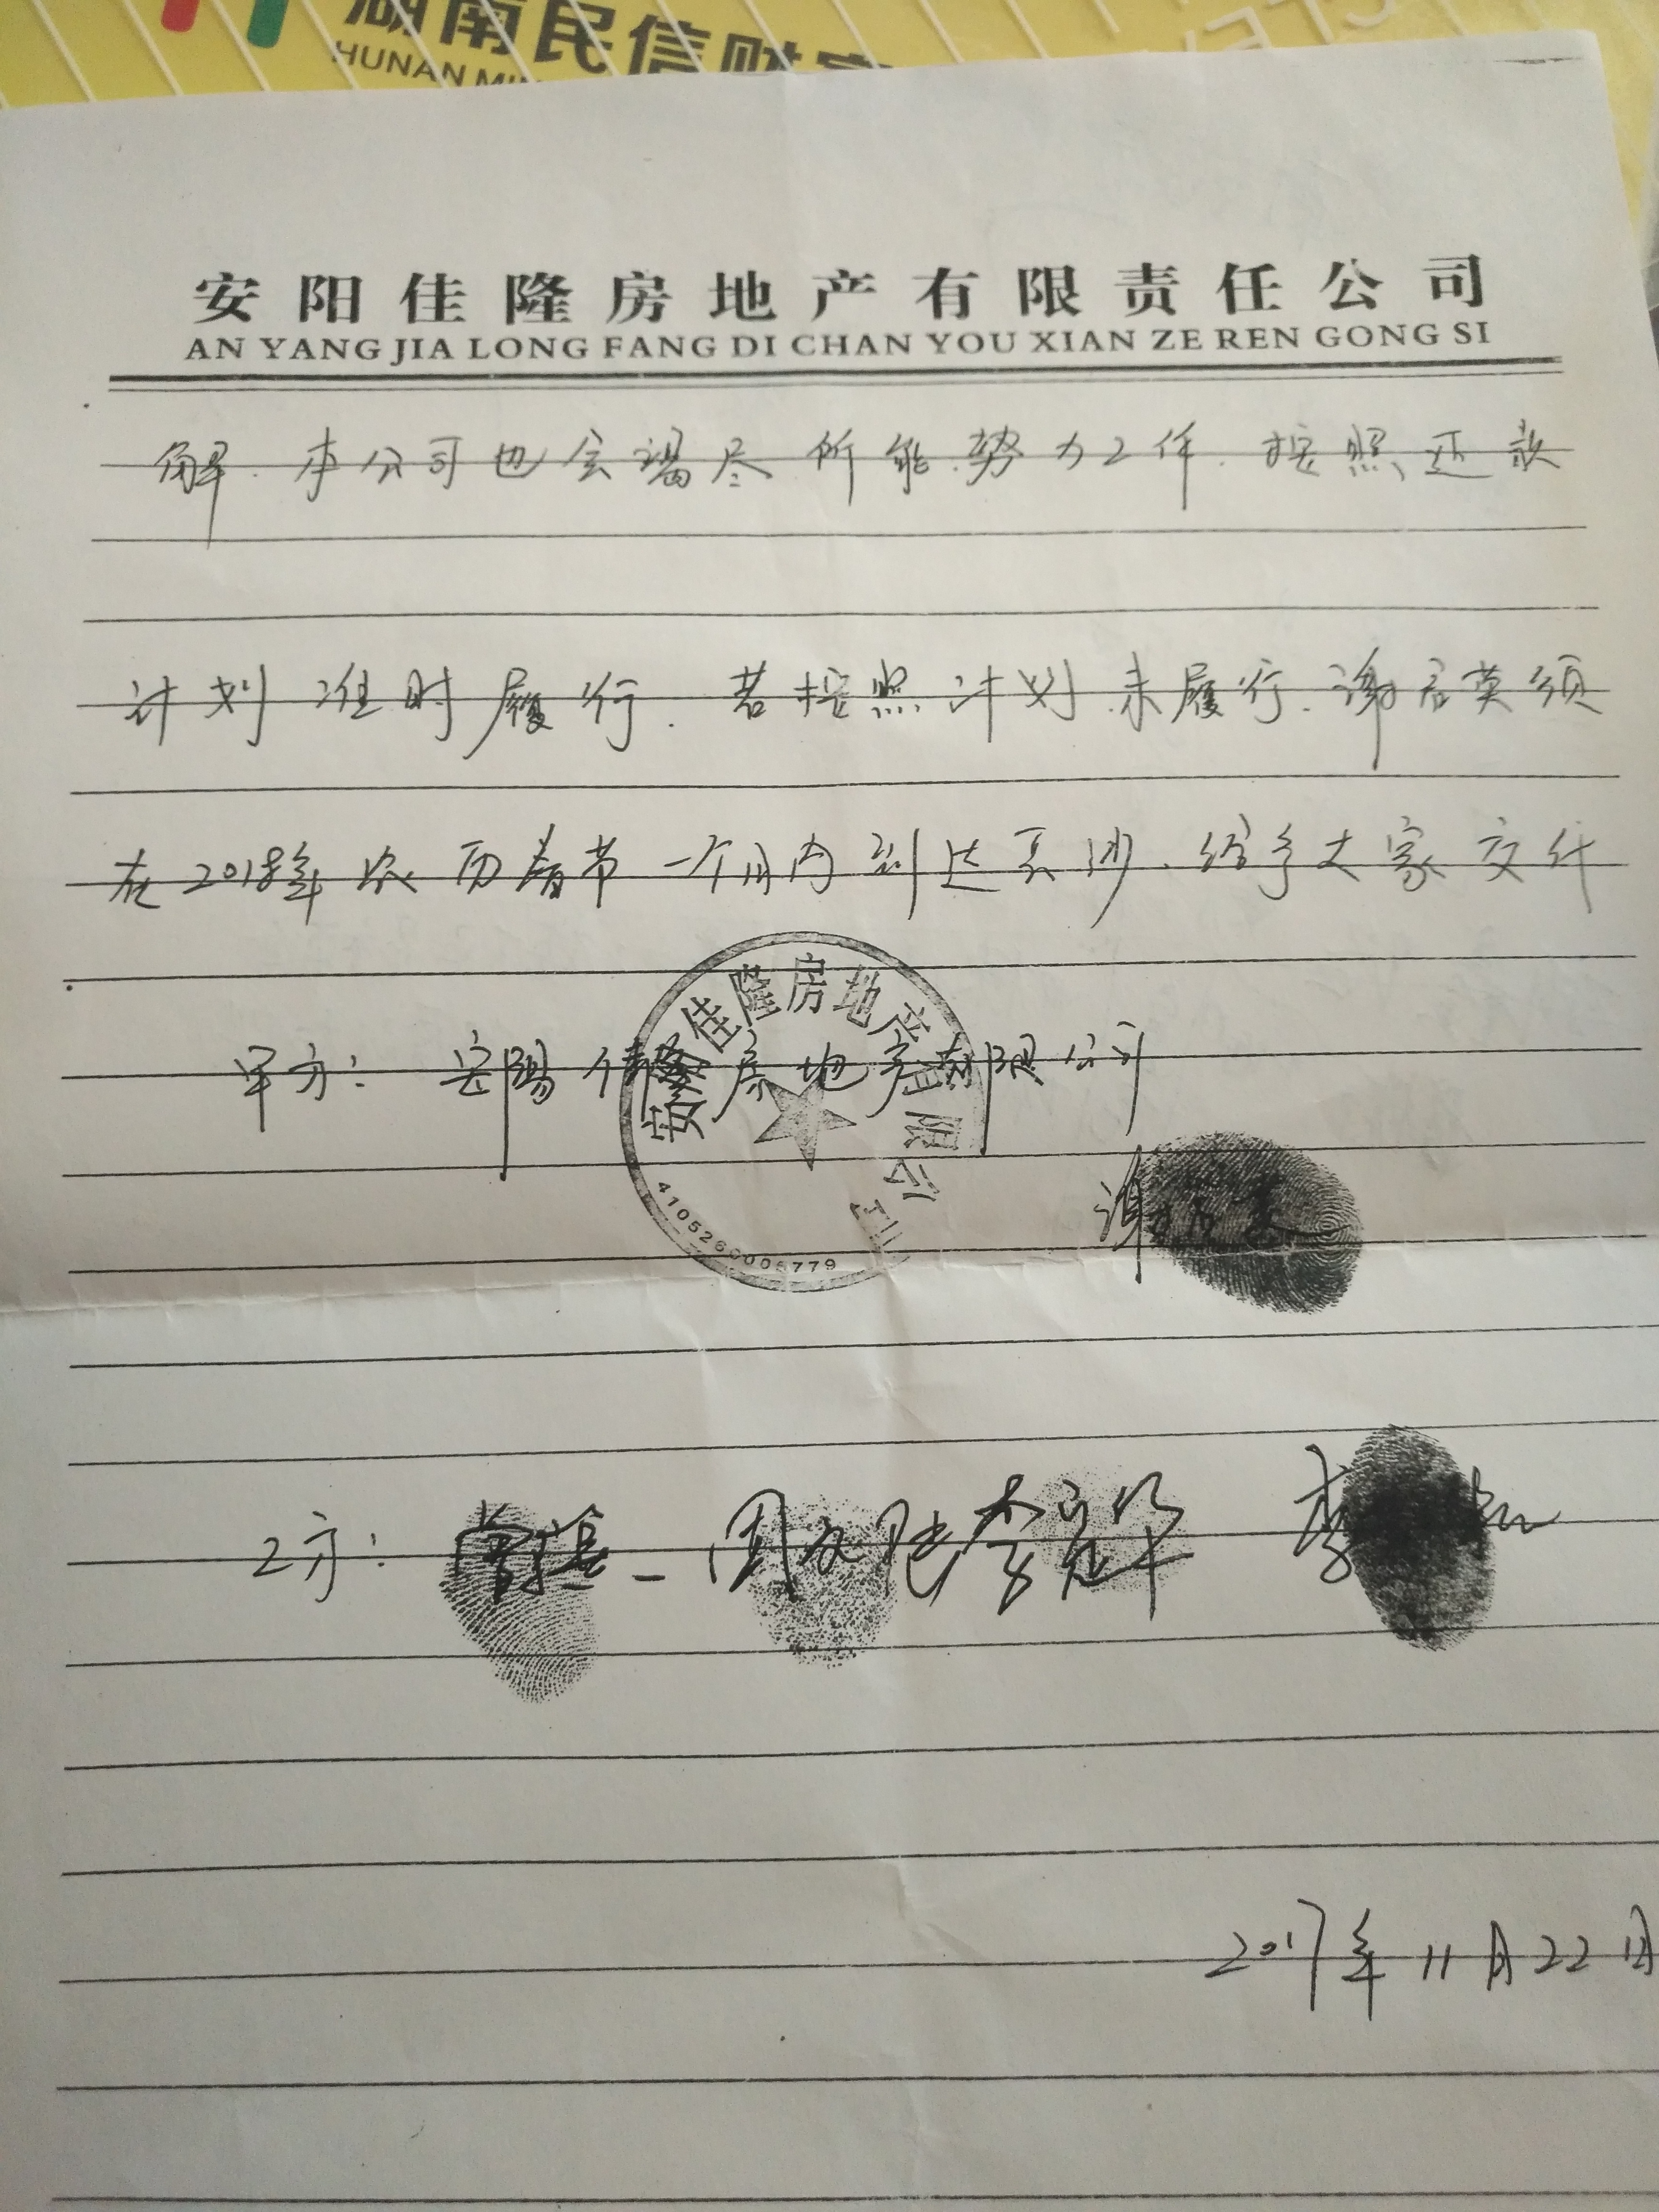 湖南民信财富
HUNAN MI
安阳佳隆房地产有限责任公司
AN YANG JIA LONG FANG DI CHAN YOU XIAN ZE REN GONG SI
解.本公司也会竭尽所能.努力工作.按照还款
计划准时履行.若按照计划未履行.谢启英须
在2018年农历春节一个月内到达长沙.给予大家交代
甲方:安陽佳隆房地产有限公司
安阳佳隆房地产有限公司
4105260005779
谢启英
乙方:
2017年11月22日